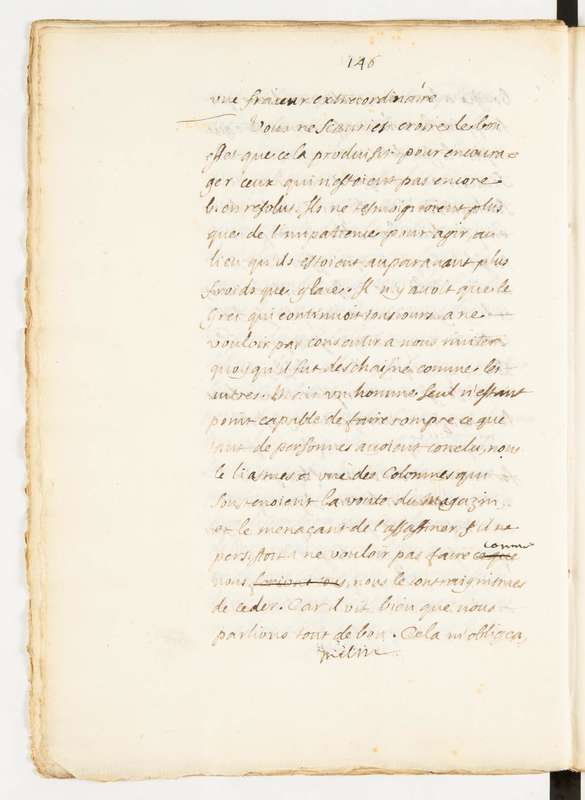 146
vne fraieur extreordinaire
Vous ne scauriez croire le bon
effet que cela produisit pour encoura=
ger ceux qui n'estoient pas encore
bien resolus. Ils ne tesmoignoient plus
que de l'impatience pour agir, au
lieu qu'ils estoient auparauant plus
froids que glace. Il n'y auoit que le
Grec qui continuoit tousiours a ne
vouloir pas consentir a nous
quoy qu'il fut deschaisné comme les
autres. Mais vn homme seul n'estant
point capable de faire rompre ce que
tant de personnes auoient conclu, nous
le liasmes a vne des Colomnes qui
soustenoient la voute du Magazin,
et le menaçant de l'assassiner s'il ne
persistoit a ne vouloir pas faire ce que comme
nous, nous le contraignismes
de ceder. Car il vit bien que nous
parlions tout de bon. Cela m'obligea